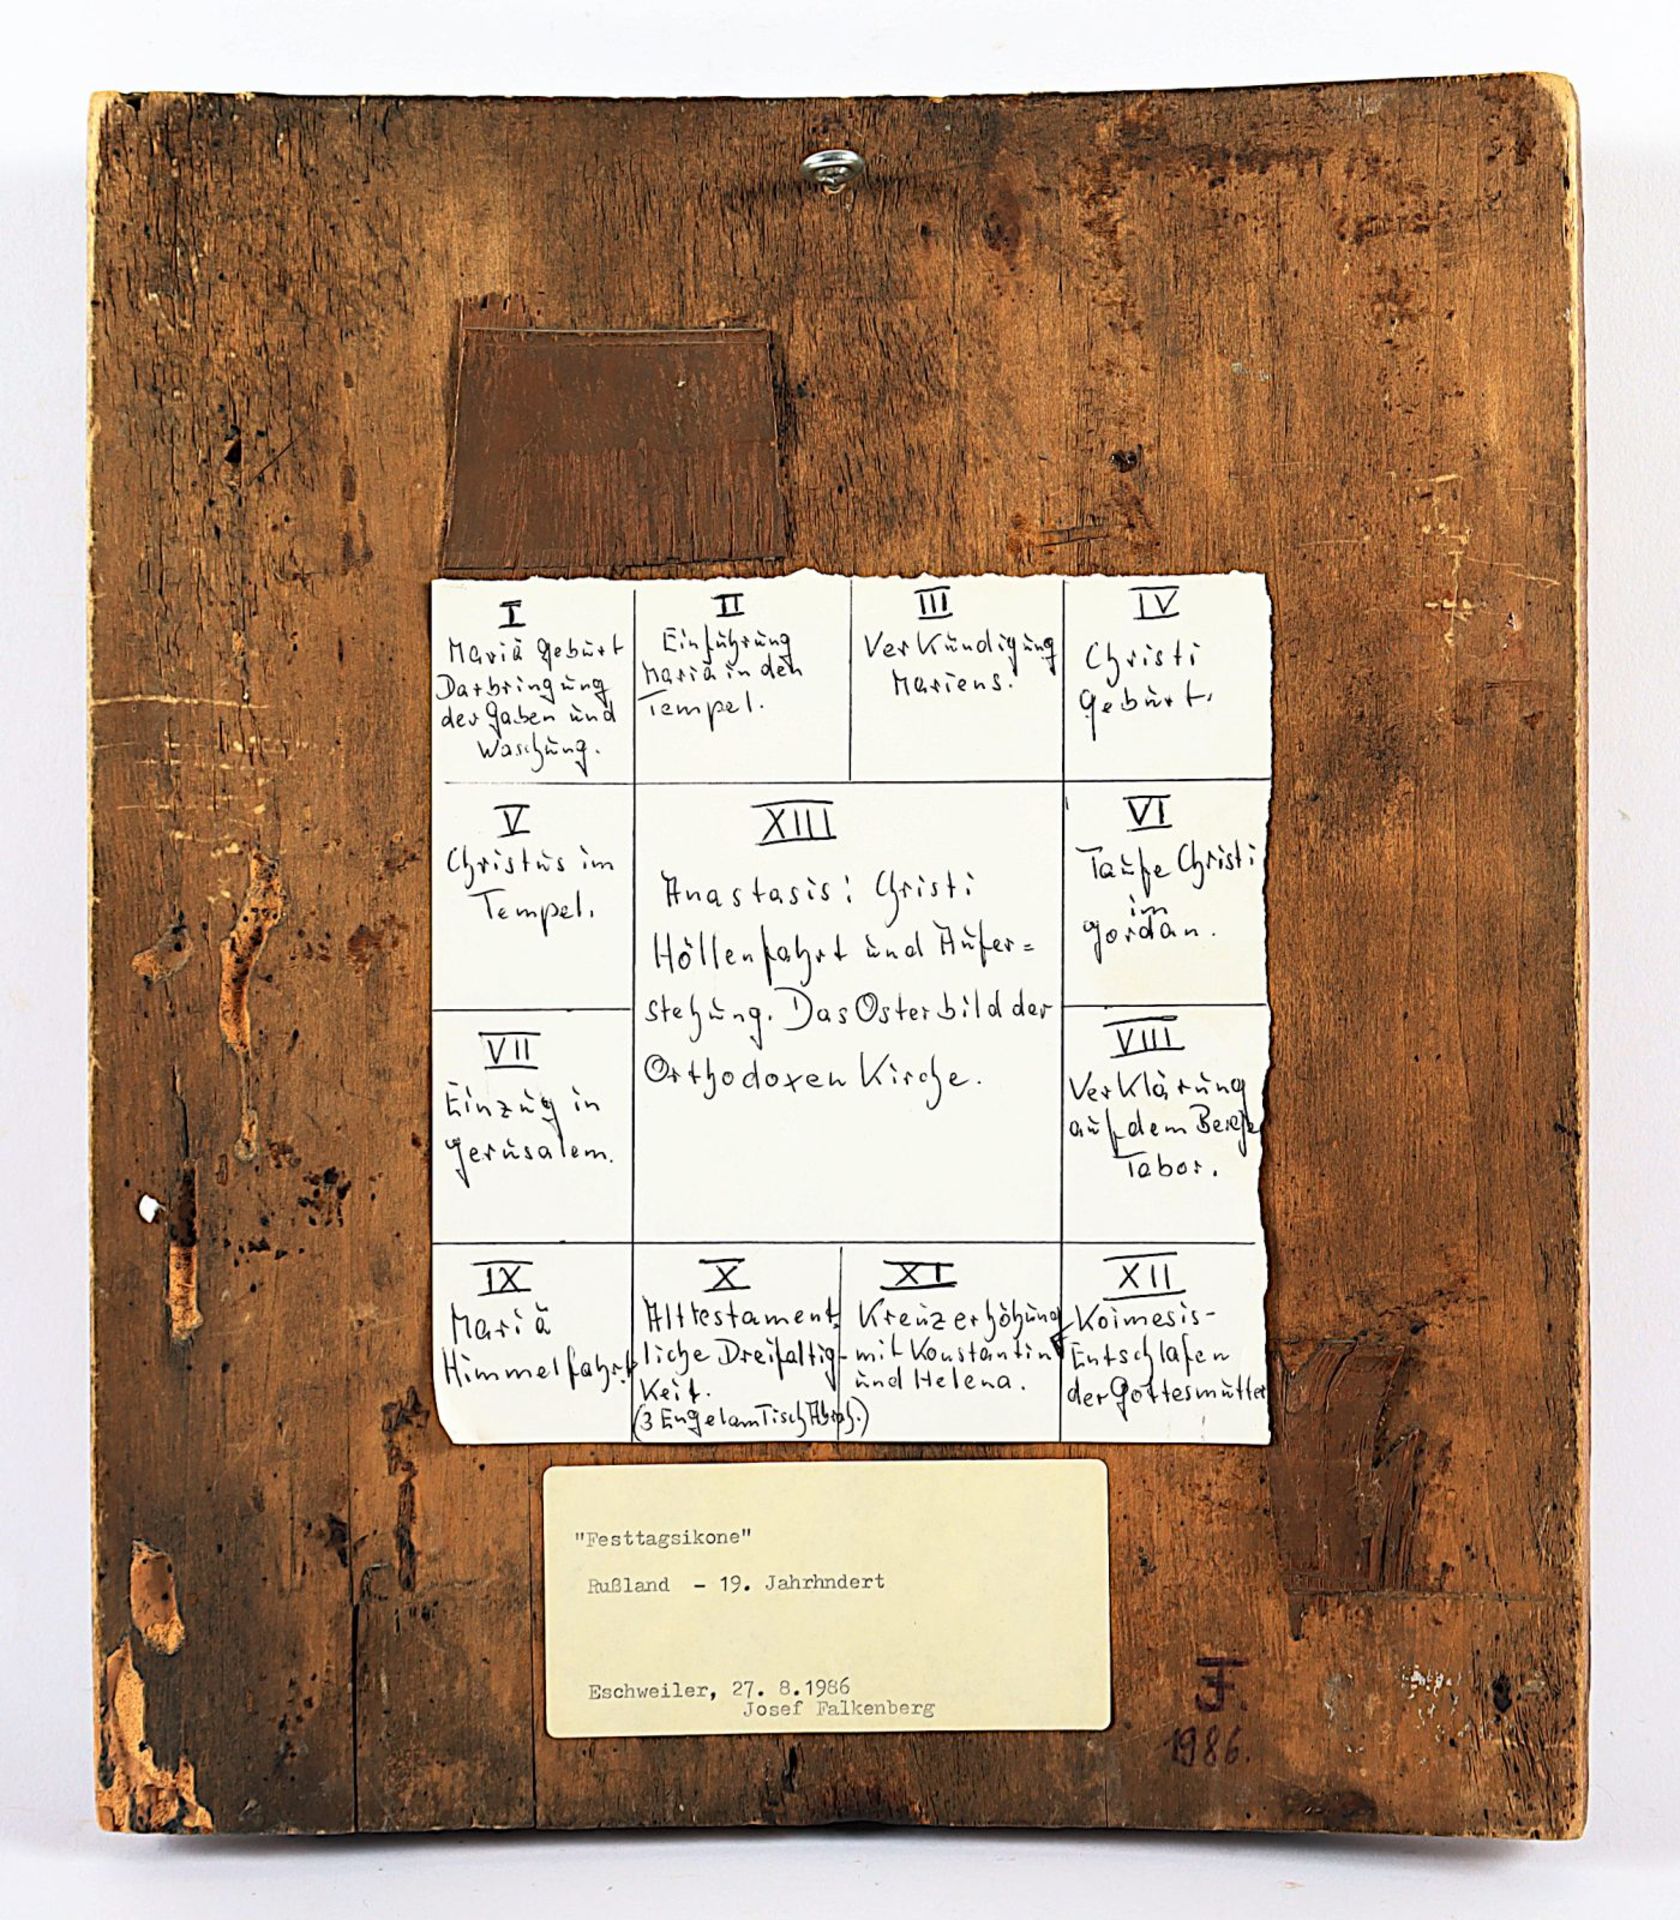 I
Mariä Geburt
Darbringung
der Gaben und
Waschung.
II
Einführung
Mariä in den
Tempel.
III
Verkündigung
Mariens.
IV
Christi
Geburt.
V
Christus im
Tempel.
XIII
Anastasis: Christi
Höllenfahrt und Aufer=
stehung. Das Osterbild der
Orthodoxen Kirche.
VI
Taufe Christi
im
Jordan.
VII
Einzug in
Jerusalem.
VIII
Verklärung
auf dem Berge
Tabor.
IX
Mariä
Himmelfahrt
X
Alttestament-
liche Dreifaltig-
keit.
(3 Engel am Tisch Abrah.)
XI
Kreuzerhöhung
mit Konstantin
und Helena.
XII
Koimesis-
Entschlafen
der Gottesmutter
"Festtagsikone"
Rußland - 19. Jahrhndert
Eschweiler, 27. 8.1986
Josef Falkenberg
JF.
1986.